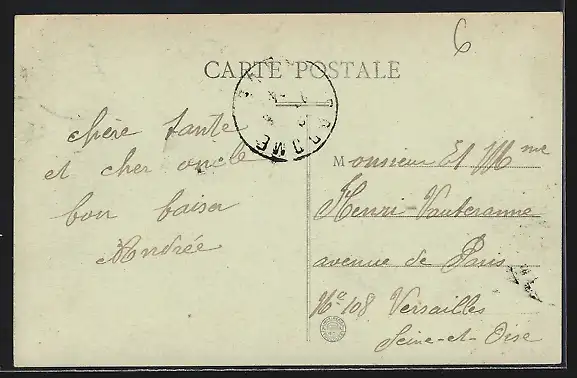 6
CARTE POSTALE
chère tante
et cher oncle
bon baiser
Andrée
Monsieur Et Mme
Henri Vauteranne
avenue de Paris
No 108 Versailles
Seine-et-Oise